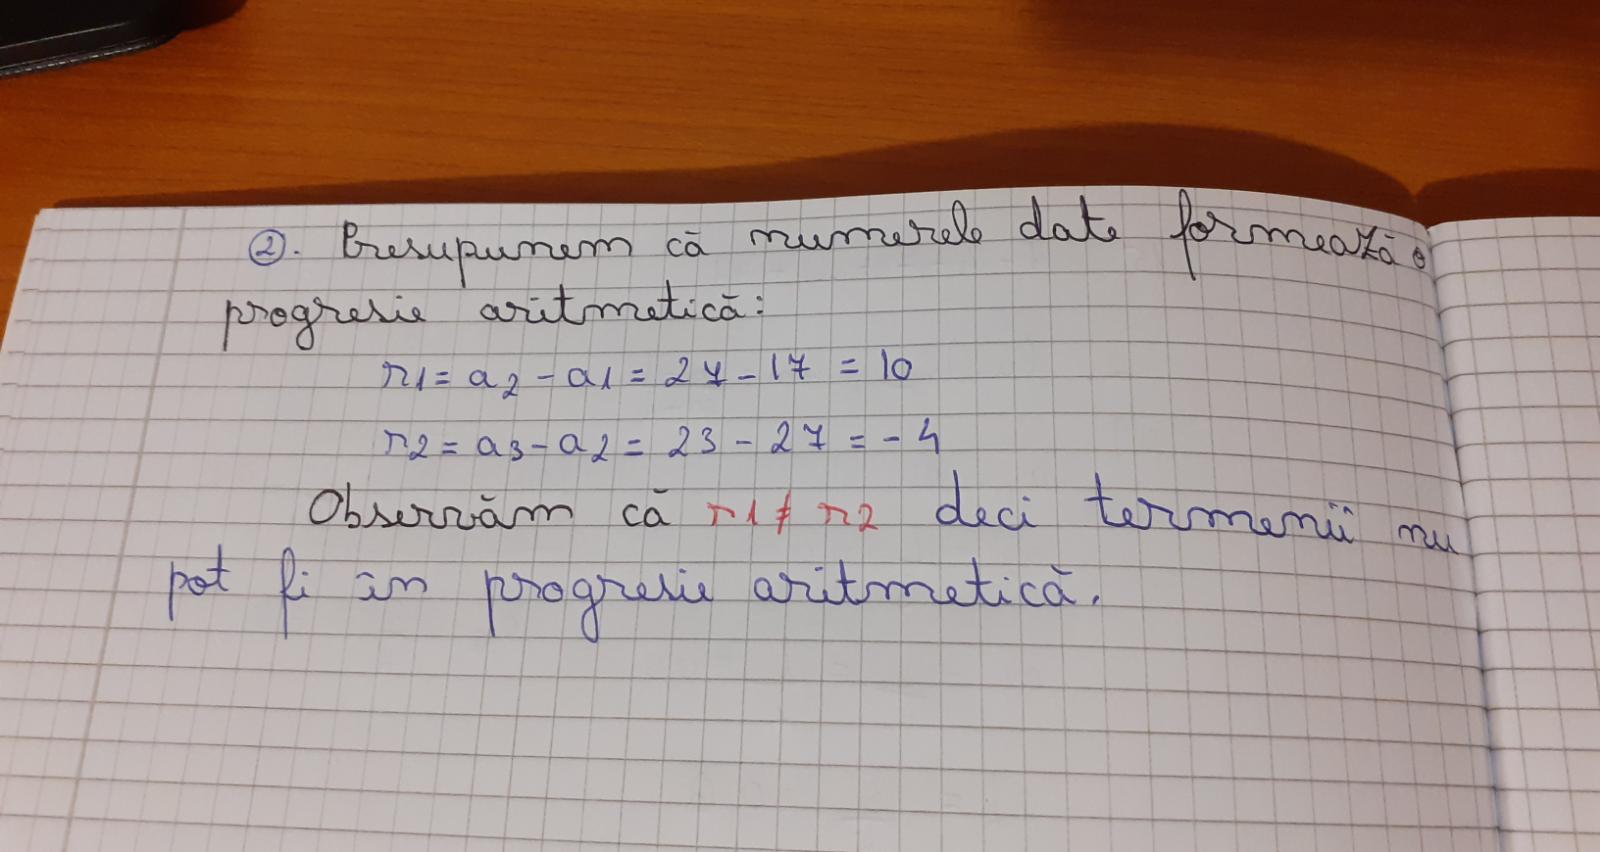 ②. Presupunem că numerele date formează o
progresie aritmetică:
r1 = a2 - a1 = 27 - 17 = 10
r2 = a3 - a2 = 23 - 27 = - 4
Observăm că r1 ≠ r2 deci termenii nu
pot fi în progresie aritmetică.